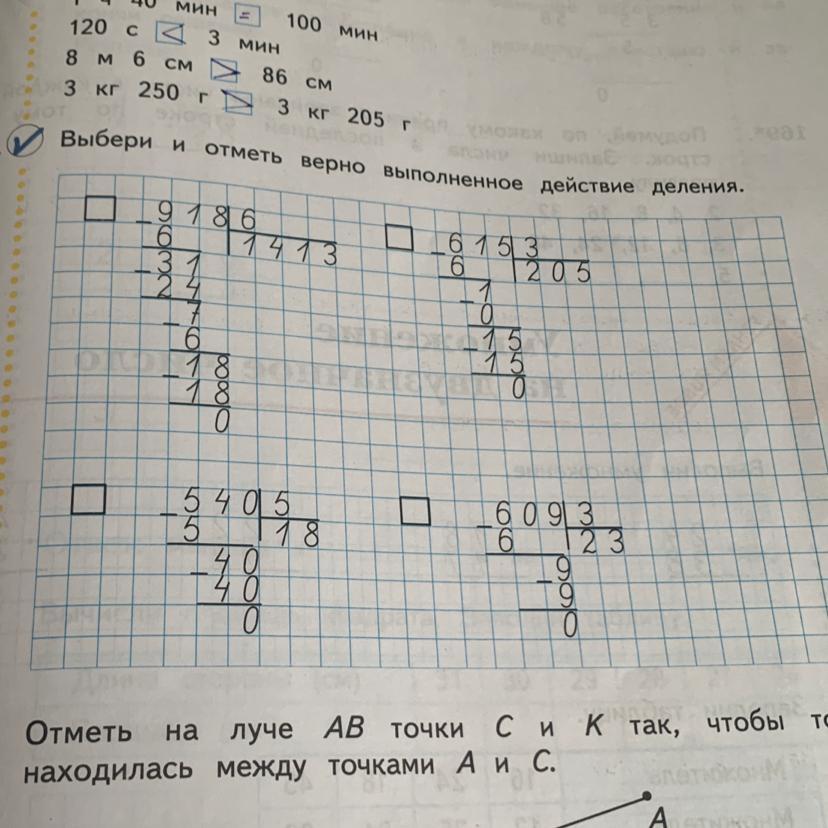 мин = 100 мин
120 с < 3 мин
8 м 6 см > 86 см
3 кг 250 г > 3 кг 205 г
Выбери и отметь верно выполненное действие деления.
918 6
6 1413
31
24
7
6
18
18
0
615 3
6 205
1
0
15
15
0
540 5
5 18
40
40
0
609 3
6 23
9
9
0
Отметь на луче AB точки C и K так, чтобы
находилась между точками A и C.
A